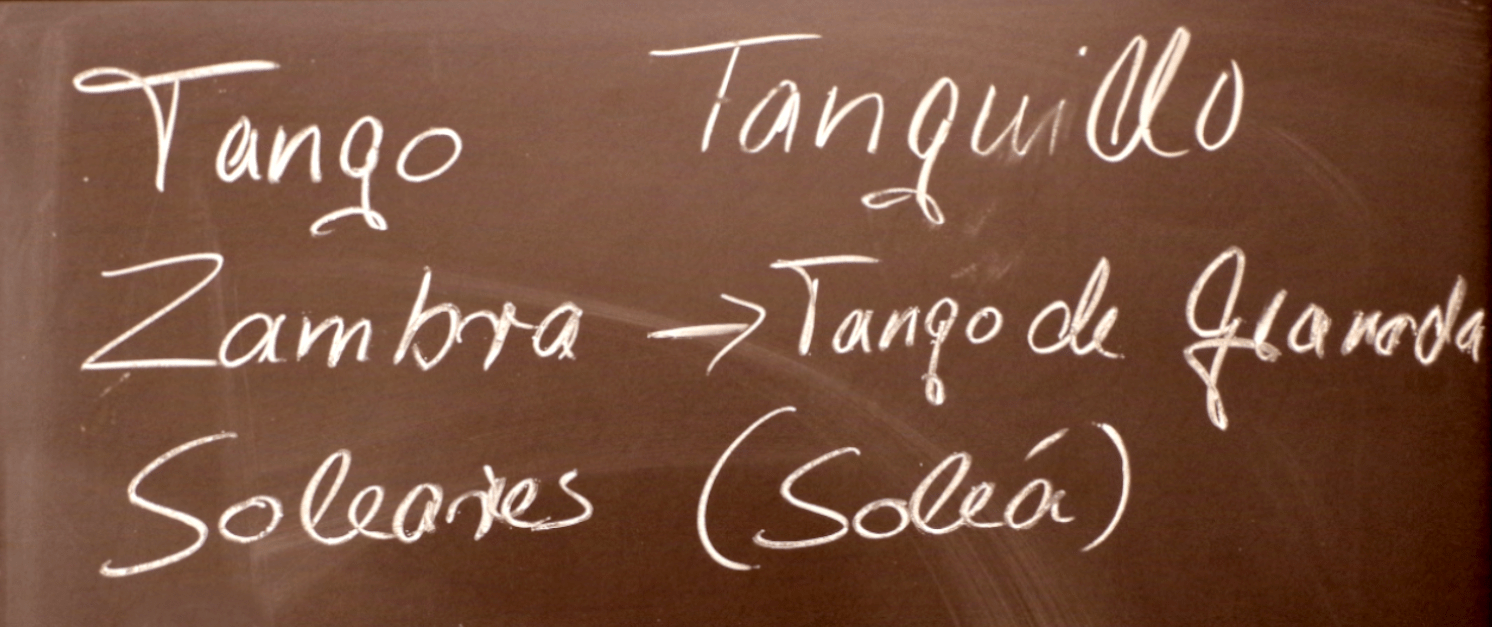 Tango Tanguillo
Zambra → Tango de Granada
Soleares (Soleá)